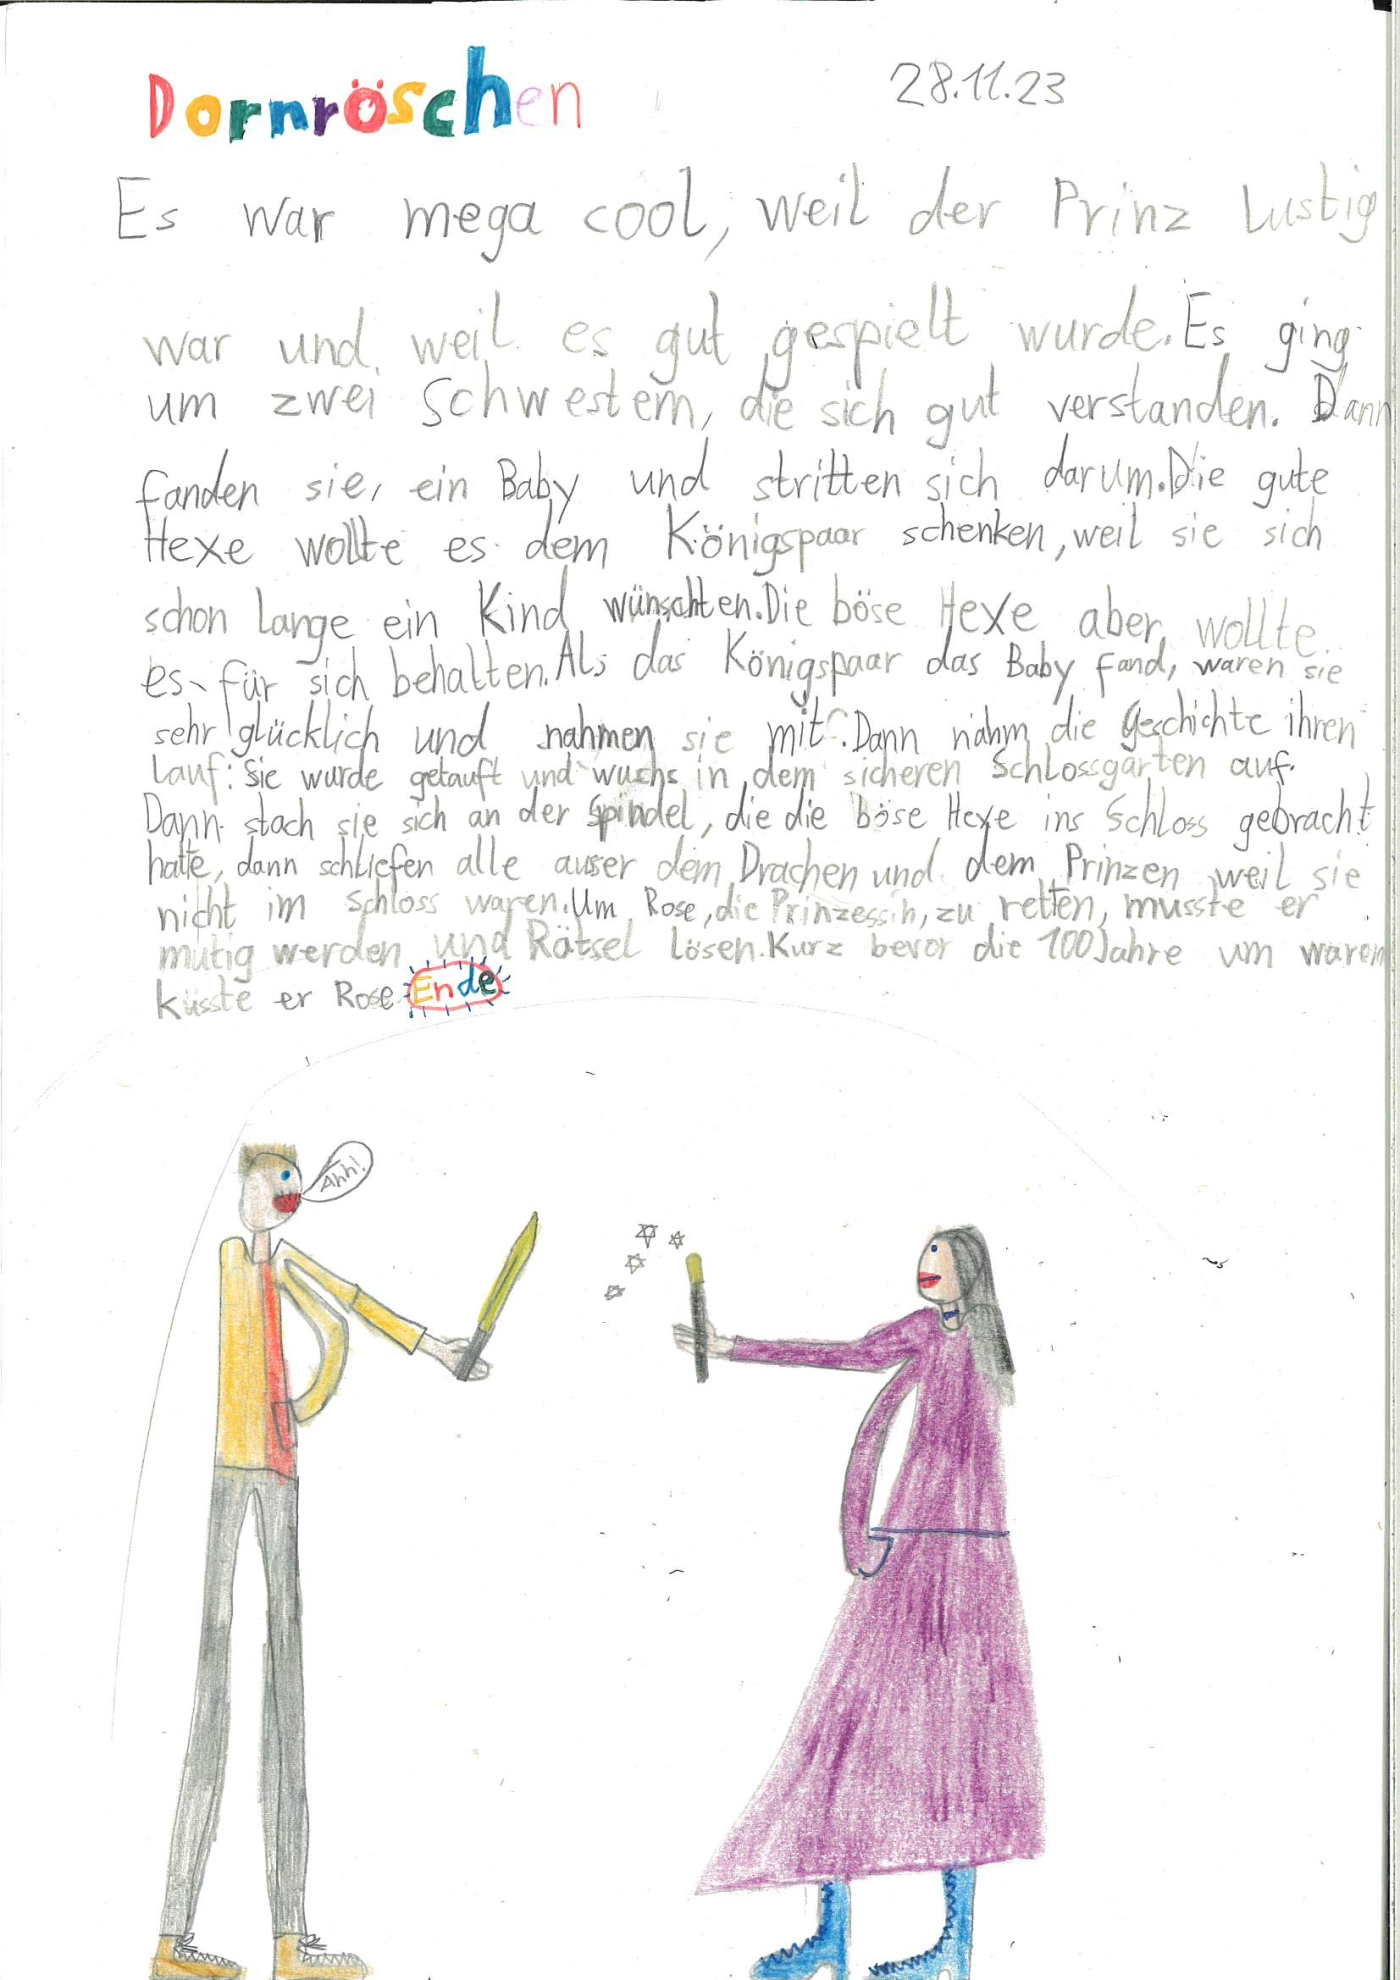 Dornröschen
28.11.23
Es war mega cool, weil der Prinz lustig
war und weil es gut gespielt wurde. Es ging
um zwei Schwestern, die sich gut verstanden. Dann
fanden sie, ein Baby und stritten sich darum. Die gute
Hexe wollte es dem Königspaar schenken, weil sie sich
schon lange ein Kind wünschten. Die böse Hexe aber wollte
es für sich behalten. Als das Königspaar das Baby fand, waren sie
sehr glücklich und nahmen sie mit. Dann nahm die Geschichte ihren
Lauf: Sie wurde getauft und wuchs in dem sicheren Schlossgarten auf.
Dann stach sie sich an der Spindel, die die böse Hexe ins Schloss gebracht
hatte, dann schliefen alle auser dem Drachen und dem Prinzen weil sie
nicht im Schloss waren. Um Rose, die Prinzessin, zu retten, musste er
mutig werden und Rätsel lösen. Kurz bevor die 100 Jahre um waren
küsste er Rose Ende
Ahh!